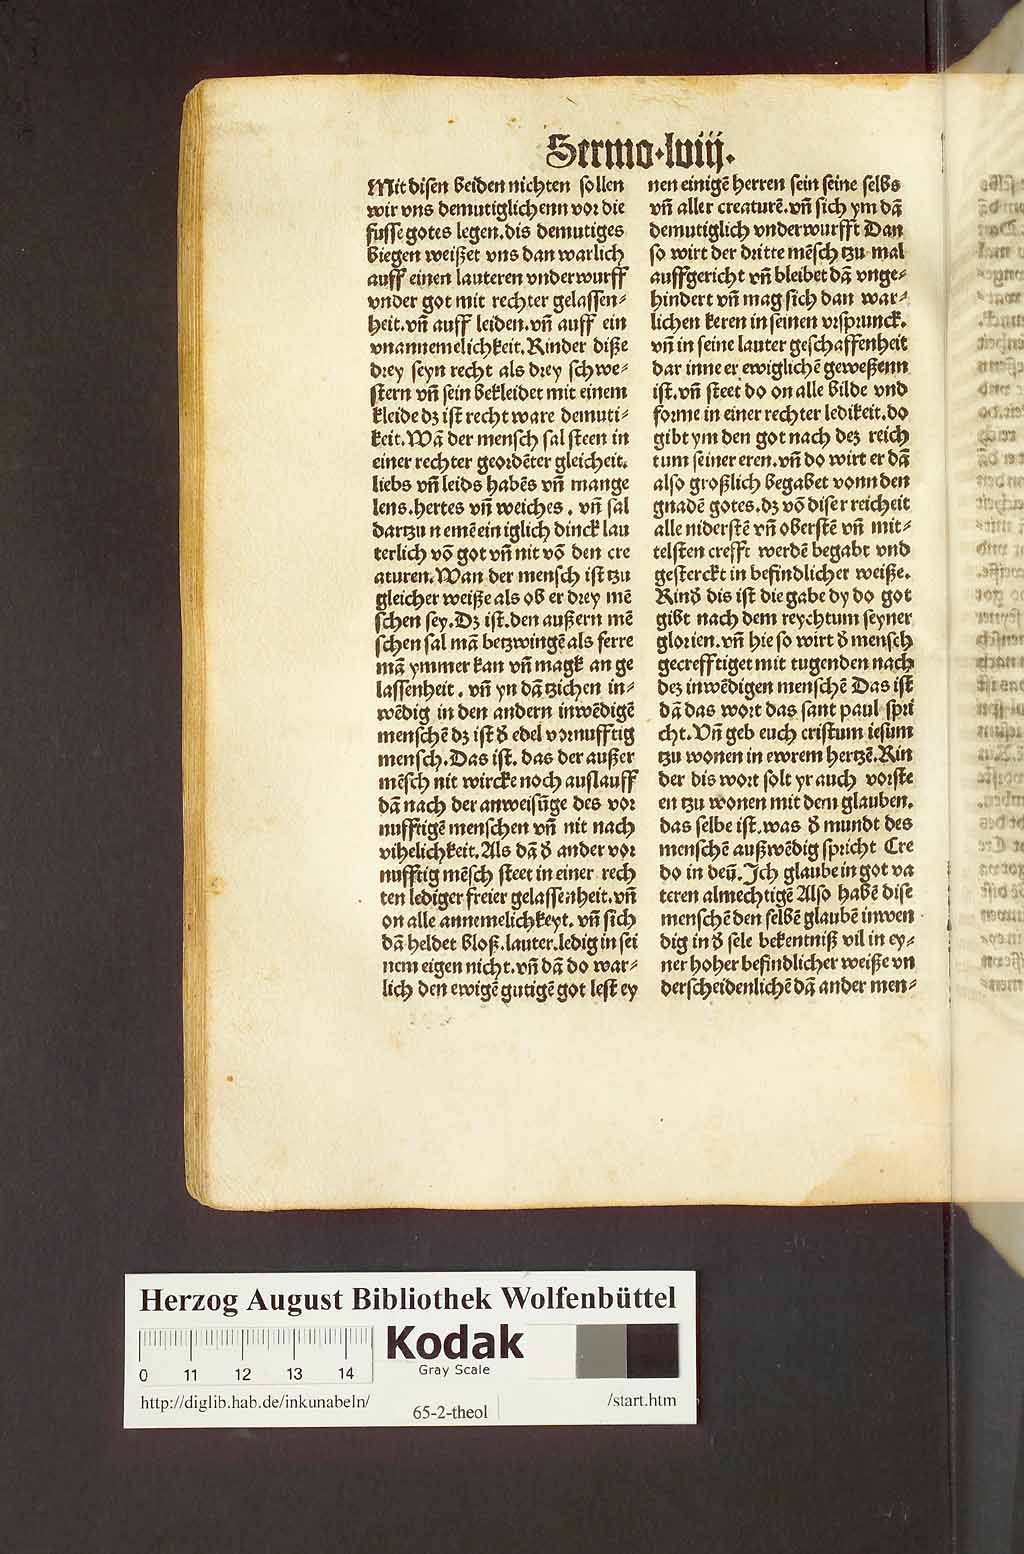 Sermo·lviij.
Mit disen beiden nichten sollen
wir vns demutiglichenn vor die
fusse gotes legen.dis demutiges
biegen weißet vns dan warlich
auff einen lauteren vnderwurff
vnder got mit rechter gelassen⸗
heit.vñ auff leiden.vñ auff ein
vnannemelichkeit.Kinder diße
drey seyn recht als drey schwe⸗
stern vñ sein bekleidet mit einem
kleide dz ist recht ware demuti⸗
keit.Wā der mensch sal steen in
einer rechter geordēter gleicheit.
liebs vñ leids habēs vñ mange
lens.hertes vñ weiches. vñ sal
dartzu nemē ein iglich dinck lau
terlich vō got vñ nit vō den cre
aturen.Wan der mensch ist tzu
gleicher weiße als ob er drey mē
schen sey.Dz ist.den außern mē
schen sal mā betzwingē als ferre
mā ymmer kan vñ magk an ge
lassenheit. vñ yn dā tzichen in⸗
wēdig in den andern inwēdigē
menschē dz ist ð edel vornufftig
mensch.Das ist. das der außer
mēsch nit wircke noch auslauff
dā nach der anweisūge des vor
nufftigē menschen vñ nit nach
vihelichkeit.Als dā ð ander vor
nufftig mēsch steet in einer rech
ten lediger freier gelassenheit.vñ
on alle annemelichkeyt. vñ sich
dā heldet bloß.lauter.ledig in sei
nem eigen nicht.vñ dā do war⸗
lich den ewigē gutigē got lest ey
nen einigē herren sein seine selbs
vñ aller creaturē.vñ sich ym dā
demutiglich vnderwurfft Dan
so wirt der dritte mēsch tzu mal
auffgericht vñ bleibet dā vnge⸗
hindert vñ mag sich dan war⸗
lichen keren in seinen vrsprunck.
vñ in seine lauter geschaffenheit
dar inne er ewiglichē geweßenn
ist.vñ steet do on alle bilde vnd
forme in einer rechter ledikeit.do
gibt ym den got nach dez reich
tum seiner eren.vñ do wirt er dā
also großlich begabet vonn den
gnadē gotes.dz vō diser reicheit
alle niderstē vñ oberstē vñ mit⸗
telsten crefft werdē begabt vnd
gesterckt in befindlicher weiße.
Kinð dis ist die gabe dy do got
gibt nach dem reychtum seyner
glorien.vñ hie so wirt ð mensch
gecrefftiget mit tugenden nach
dez inwēdigen menschē Das ist
dā das wort das sant paul spri
cht.Vñ geb euch cristum iesum
tzu wonen in ewrem hertzē.Kin
der dis wort solt yr auch vorste
en tzu wonen mit dem glauben.
das selbe ist.was ð mundt des
menschē außwēdig spricht Cre
do in deū.Ich glaube in got va
teren almechtigē Also habē dise
menschē den selbē glaubē inwen
dig in ð sele bekentniß vil in ey⸗
ner hoher befindlicher weiße vn
derscheidenlichē dā ander men⸗
Herzog August Bibliothek Wolfenbüttel
Kodak
Gray Scale
0 11 12 13 14
http://diglib.hab.de/inkunabeln/
65-2-theol
/start.htm